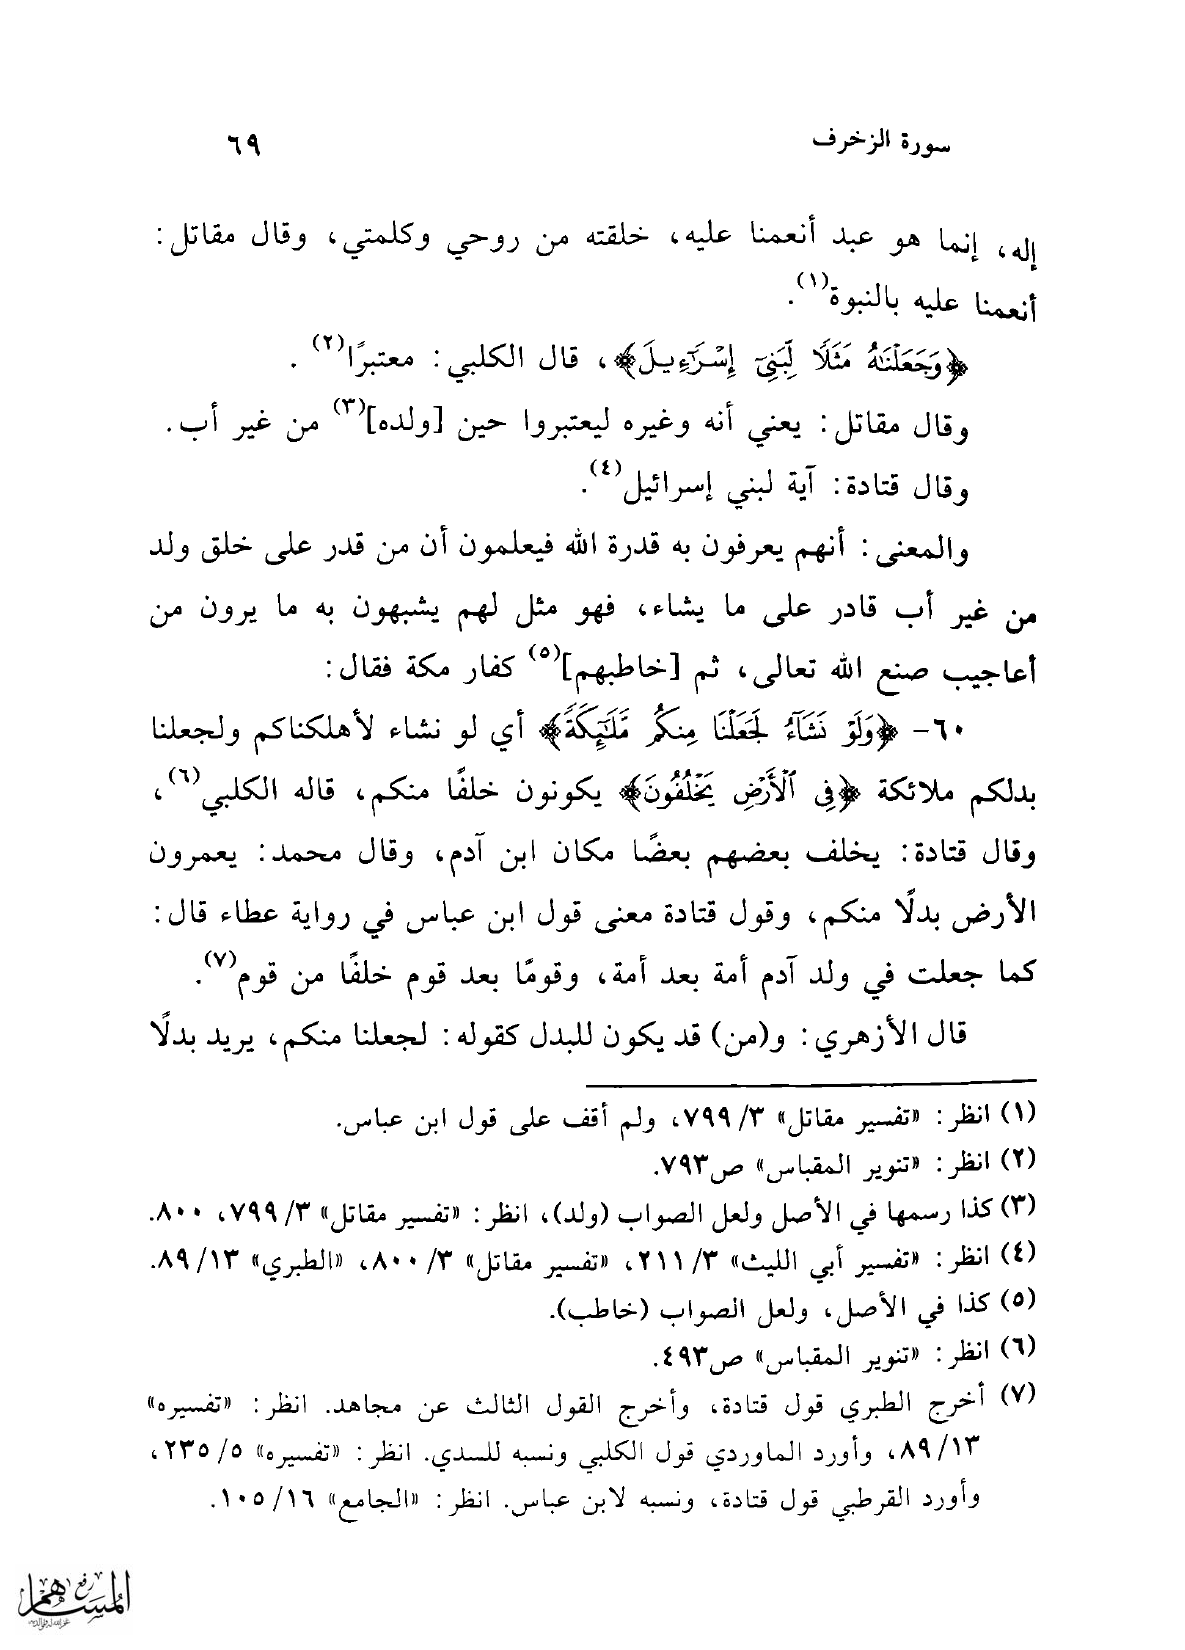 سورة الزخرف ٦٩
إله، إنما هو عبد أنعمنا عليه، خلقته من روحي وكلمتي، وقال مقاتل:
أنعمنا عليه بالنبوة(١).
﴿وَجَعَلْنَاهُ مَثَلًا لِّبَنِيٓ إِسْرَٰٓءِيلَ﴾، قال الكلبي: معتبرًا(٢).
وقال مقاتل: يعني أنه وغيره ليعتبروا حين [ولده](٣) من غير أب.
وقال قتادة: آية لبني إسرائيل(٤).
والمعنى: أنهم يعرفون به قدرة الله فيعلمون أن من قدر على خلق ولد
من غير أب قادر على ما يشاء، فهو مثل لهم يشبهون به ما يرون من
أعاجيب صنع الله تعالى، ثم [خاطبهم](٥) كفار مكة فقال:
٦٠- ﴿وَلَوْ نَشَآءُ لَجَعَلْنَا مِنكُم مَّلَٰٓئِكَةً﴾ أي لو نشاء لأهلكناكم ولجعلنا
بدلكم ملائكة ﴿فِى ٱلْأَرْضِ يَخْلُفُونَ﴾ يكونون خلفًا منكم، قاله الكلبي(٦)،
وقال قتادة: يخلف بعضهم بعضًا مكان ابن آدم، وقال محمد: يعمرون
الأرض بدلًا منكم، وقول قتادة معنى قول ابن عباس في رواية عطاء قال:
كما جعلت في ولد آدم أمة بعد أمة، وقومًا بعد قوم خلفًا من قوم(٧).
قال الأزهري: و(من) قد يكون للبدل كقوله: لجعلنا منكم، يريد بدلًا
(١) انظر: «تفسير مقاتل» ٣/ ٧٩٩، ولم أقف على قول ابن عباس.
(٢) انظر: «تنوير المقباس» ص٧٩٣.
(٣) كذا رسمها في الأصل ولعل الصواب (ولد)، انظر: «تفسير مقاتل» ٣/ ٧٩٩، ٨٠٠.
(٤) انظر: «تفسير أبي الليث» ٣/ ٢١١، «تفسير مقاتل» ٣/ ٨٠٠، «الطبري» ١٣/ ٨٩.
(٥) كذا في الأصل، ولعل الصواب (خاطب).
(٦) انظر: «تنوير المقباس» ص٤٩٣.
(٧) أخرج الطبري قول قتادة، وأخرج القول الثالث عن مجاهد. انظر: «تفسيره»
١٣/ ٨٩، وأورد الماوردي قول الكلبي ونسبه للسدي. انظر: «تفسيره» ٥/ ٢٣٥،
وأورد القرطبي قول قتادة، ونسبه لابن عباس. انظر: «الجامع» ١٦/ ١٠٥.